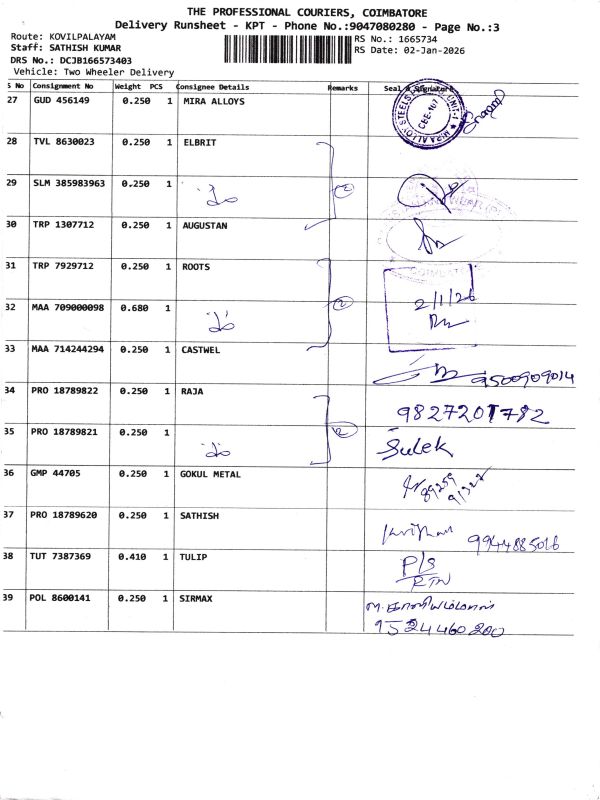 THE PROFESSIONAL COURIERS, COIMBATORE
Delivery Runsheet - KPT - Phone No.:9047080280 - Page No.:3
Route: KOVILPALAYAM
Staff: SATHISH KUMAR
DRS No.: DCJB166573403
Vehicle: Two Wheeler Delivery
RS No.: 1665734
RS Date: 02-Jan-2026
S No Consignment No Weight PCS Consignee Details Remarks Seal & Signature
27 GUD 456149 0.250 1 MIRA ALLOYS
28 TVL 8630023 0.250 1 ELBRIT
29 SLM 385983963 0.250 1
30 TRP 1307712 0.250 1 AUGUSTAN
31 TRP 7929712 0.250 1 ROOTS
32 MAA 709000098 0.680 1 2/1/26
33 MAA 714244294 0.250 1 CASTWEL 9500909014
34 PRO 18789822 0.250 1 RAJA 9827201782
35 PRO 18789821 0.250 1 Sulek
36 GMP 44705 0.250 1 GOKUL METAL
37 PRO 18789620 0.250 1 SATHISH 9944885016
38 TUT 7387369 0.410 1 TULIP P/S RTN
39 POL 8600141 0.250 1 SIRMAX
9524460200